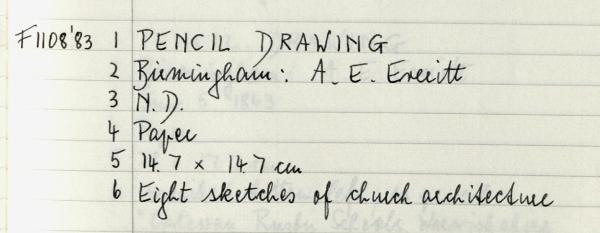 F1108'83 1 PENCIL DRAWING
2 Birmingham: A. E. Everitt
3 N.D.
4 Paper
5 14.7 x 14.7 cm
6 Eight sketches of church architecture